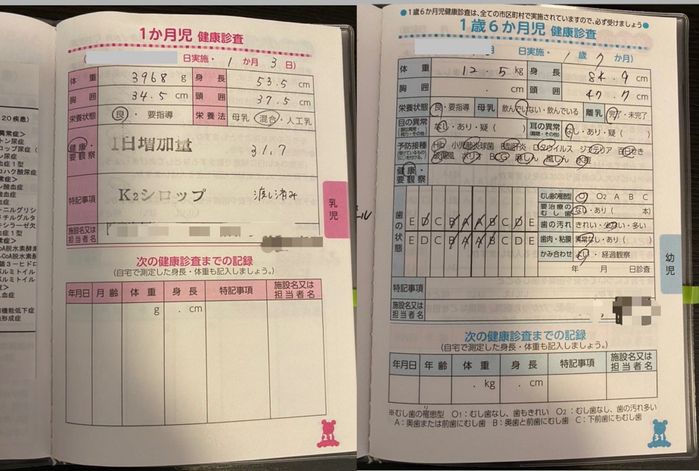 20疾患)
異常症>
1か月児 健康診査
日実施・1か月3日)
体重 3968g 身長 53.5cm
胸囲 34.5cm 頭囲 37.5cm
栄養状態 良・要指導 栄養法 母乳 混合・人工乳
健康・要観察 1日増加量 31.7
特記事項 K2シロップ 渡し済み
施設名又は担当者名
次の健康診査までの記録
(自宅で測定した身長・体重も記入しましょう。)
年月日 月齢 体重 身長 特記事項 施設名又は担当者名
g . cm
乳児
31
●1歳6か月児健康診査は、全ての市区町村で実施されていますので、必ず受けましょう●
1歳6か月児 健康診査
日実施・1歳7か月)
体重 12.5kg 身長 84.9cm
胸囲 . cm 頭囲 47.7cm
栄養状態 良・要指導 母乳 飲んでいない・飲んでいる 離乳 完了・未完了
目の異常 なし・あり・疑( ) 耳の異常 なし・あり・疑( )
予防接種
健康・要観察
歯の状態
E D C B A A B C D E
E D C B A A B C D E
むし歯の罹患型 O1 O2 A B C
要治療のむし歯 なし・あり( 本)
歯の汚れ きれい・少ない・多い
歯肉・粘膜 異常なし・あり( )
かみ合わせ よい・経過観察
年 月 日診査
特記事項
施設名又は担当者名
次の健康診査までの記録
(自宅で測定した身長・体重も記入しましょう。)
年月日 年齢 体重 身長 特記事項 施設名又は担当者名
. kg . cm
※むし歯の罹患型 O1:むし歯なし、歯もきれい O2:むし歯なし、歯の汚れ多い
A:奥歯または前歯にむし歯 B:奥歯と前歯にむし歯 C:下前歯にもむし歯
幼児
31